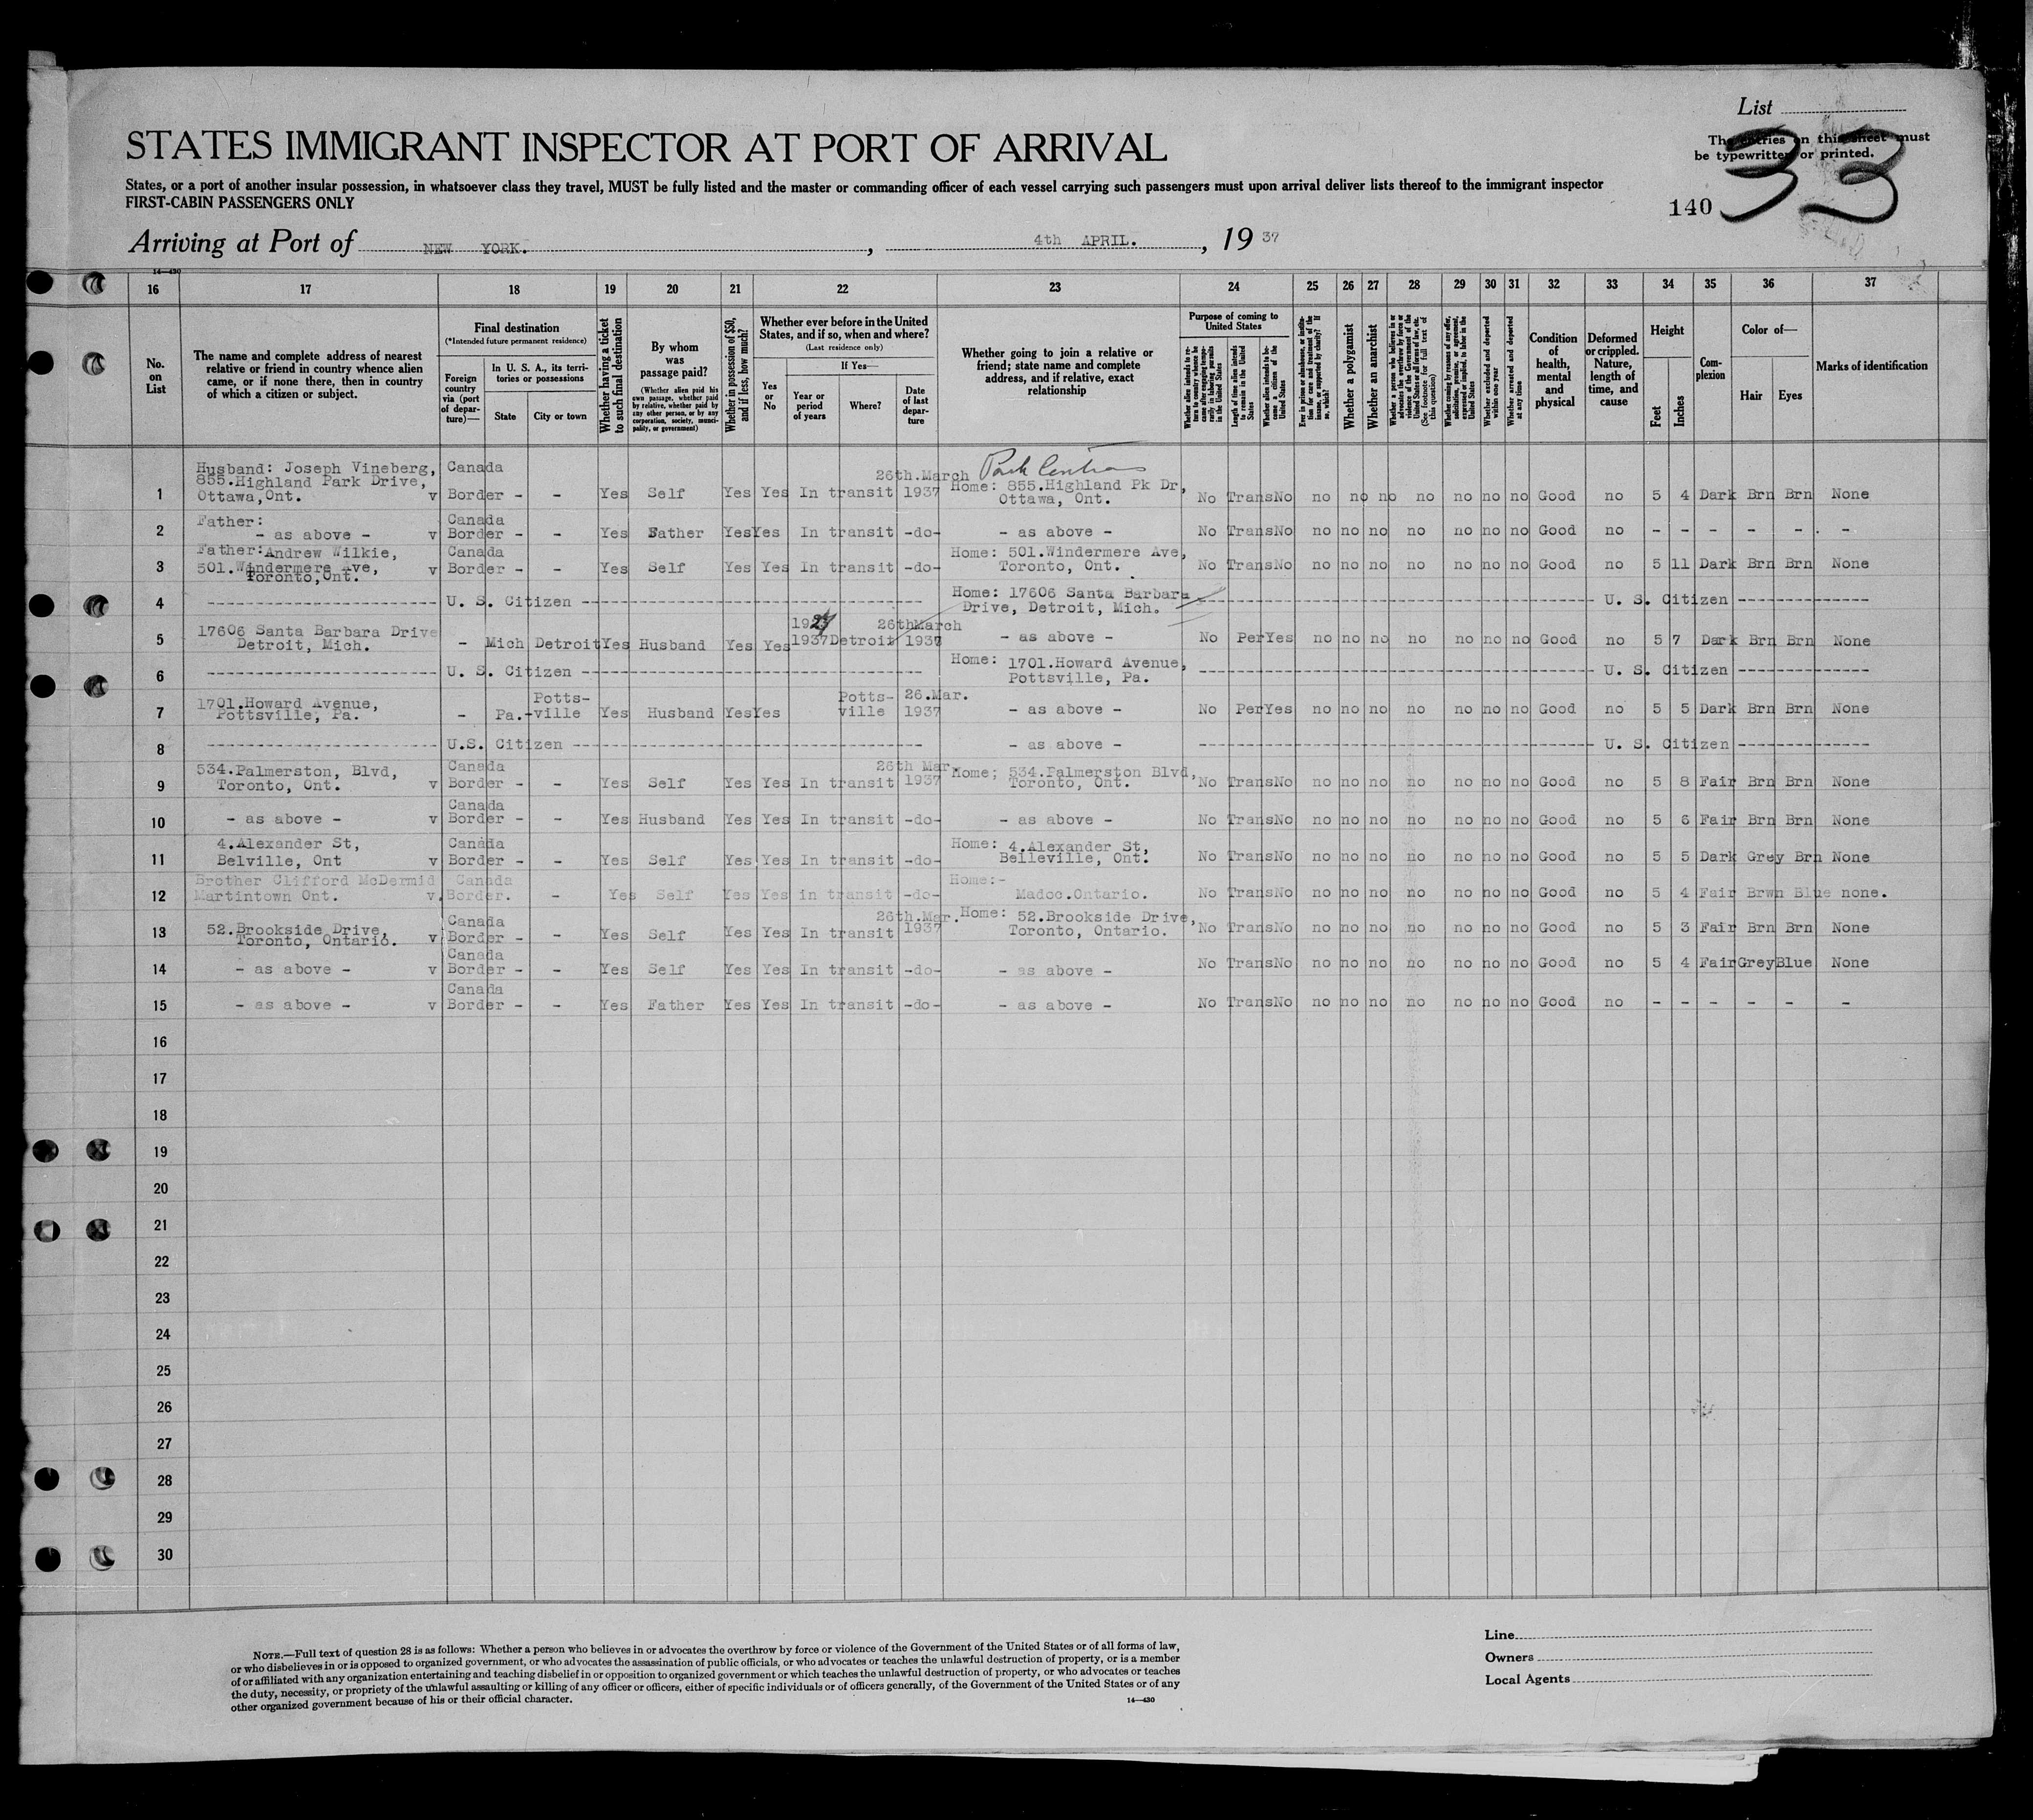 List
The entries on this sheet must
be typewritten or printed.
33
140
STATES IMMIGRANT INSPECTOR AT PORT OF ARRIVAL
States, or a port of another insular possession, in whatsoever class they travel, MUST be fully listed and the master or commanding officer of each vessel carrying such passengers must upon arrival deliver lists thereof to the immigrant inspector
FIRST-CABIN PASSENGERS ONLY
Arriving at Port of NEW YORK. , 4th APRIL. , 19 37
14—430
16 17 18 19 20 21 22 23 24 25 26 27 28 29 30 31 32 33 34 35 36 37
No. on List
The name and complete address of nearest relative or friend in country whence alien came, or if none there, then in country of which a citizen or subject.
Final destination
(*Intended future permanent residence)
Foreign country via (port of departure)—
In U. S. A., its territories or possessions
State
City or town
Whether having a ticket to such final destination
By whom was passage paid?
(Whether alien paid his own passage, whether paid by relative, whether paid by any other person, or by any corporation, society, municipality, or government)
Whether in possession of $50, and if less, how much?
Whether ever before in the United States, and if so, when and where?
(Last residence only)
Yes or No
If Yes—
Year or period of years
Where?
Date of last departure
Whether going to join a relative or friend; state name and complete address, and if relative, exact relationship
Purpose of coming to United States
Whether alien intends to return to country whence he came after engaging temporarily in laboring pursuits in the United States
Length of time alien intends to remain in the United States
Whether alien intends to become a citizen of the United States
Ever in prison or almshouse, or institution for care and treatment of the insane, or supported by charity? If so, which?
Whether a polygamist
Whether an anarchist
Whether a person who believes in or advocates the overthrow by force or violence of the Government of the United States or all forms of law, etc. (See footnote for full text of this question)
Whether coming by reason of any offer, solicitation, promise, or agreement, expressed or implied, to labor in the United States
Whether excluded and deported within one year
Whether arrested and deported at any time
Condition of health, mental and physical
Deformed or crippled. Nature, length of time, and cause
Height
Feet
Inches
Complexion
Color of—
Hair
Eyes
Marks of identification
Park Central
1 Husband: Joseph Vineberg, 855.Highland Park Drive, Ottawa,Ont. v Canada Border - - Yes Self Yes Yes In transit 26th.March 1937 Home: 855.Highland Pk Dr, Ottawa, Ont. No Trans No no no no no no no no Good no 5 4 Dark Brn Brn None
2 Father: - as above - v Canada Border - - Yes Father Yes Yes In transit -do- - as above - No Trans No no no no no no no no Good no - - - - - -
3 Father:Andrew Wilkie, 501.Windermere Ave, Toronto,Ont. v Canada Border - - Yes Self Yes Yes In transit -do- Home: 501.Windermere Ave, Toronto, Ont. No Trans No no no no no no no no Good no 5 11 Dark Brn Brn None
4 U. S. Citizen Home: 17606 Santa Barbara Drive, Detroit, Mich. U. S. Citizen
5 17606 Santa Barbara Drive Detroit, Mich. - Mich Detroit Yes Husband Yes Yes 1927 1937 Detroit 26thMarch 1937 - as above - No Per Yes no no no no no no no Good no 5 7 Dark Brn Brn None
6 U. S. Citizen Home: 1701.Howard Avenue, Pottsville, Pa. U. S. Citizen
7 1701.Howard Avenue, Pottsville, Pa. - Pa. Potts-ville Yes Husband Yes Yes Potts-ville 26.Mar. 1937 - as above - No Per Yes no no no no no no no Good no 5 5 Dark Brn Brn None
8 U.S. Citizen - as above - U. S. Citizen
9 534.Palmerston, Blvd, Toronto, Ont. v Canada Border - - Yes Self Yes Yes In transit 26th Mar. 1937 Home; 534.Palmerston Blvd, Toronto, Ont. No Trans No no no no no no no no Good no 5 8 Fair Brn Brn None
10 - as above - v Canada Border - - Yes Husband Yes Yes In transit -do- - as above - No Trans No no no no no no no no Good no 5 6 Fair Brn Brn None
11 4.Alexander St, Belville, Ont v Canada Border - - Yes Self Yes Yes In transit -do- Home: 4.Alexander St, Belleville, Ont. No Trans No no no no no no no no Good no 5 5 Dark Grey Brn None
12 Brother Clifford McDermid Martintown Ont. v. Canada Border. - Yes Self Yes Yes in transit -do- Home:- Madoc.Ontario. No Trans No no no no no no no no Good no 5 4 Fair Brwn Blue none.
13 52.Brookside Drive, Toronto, Ontario. v Canada Border - - Yes Self Yes Yes In transit 26th.Mar. 1937 Home: 52.Brookside Drive, Toronto, Ontario. No Trans No no no no no no no no Good no 5 3 Fair Brn Brn None
14 - as above - v Canada Border - - Yes Self Yes Yes In transit -do- - as above - No Trans No no no no no no no no Good no 5 4 Fair Grey Blue None
15 - as above - v Canada Border - - Yes Father Yes Yes In transit -do- - as above - No Trans No no no no no no no no Good no - - - - - -
16
17
18
19
20
21
22
23
24
25
26
27
28
29
30
NOTE.—Full text of question 28 is as follows: Whether a person who believes in or advocates the overthrow by force or violence of the Government of the United States or of all forms of law,
or who disbelieves in or is opposed to organized government, or who advocates the assassination of public officials, or who advocates or teaches the unlawful destruction of property, or is a member
of or affiliated with any organization entertaining and teaching disbelief in or opposition to organized government or which teaches the unlawful destruction of property, or who advocates or teaches
the duty, necessity, or propriety of the unlawful assaulting or killing of any officer or officers, either of specific individuals or of officers generally, of the Government of the United States or of any
other organized government because of his or their official character.
14—430
Line
Owners
Local Agents